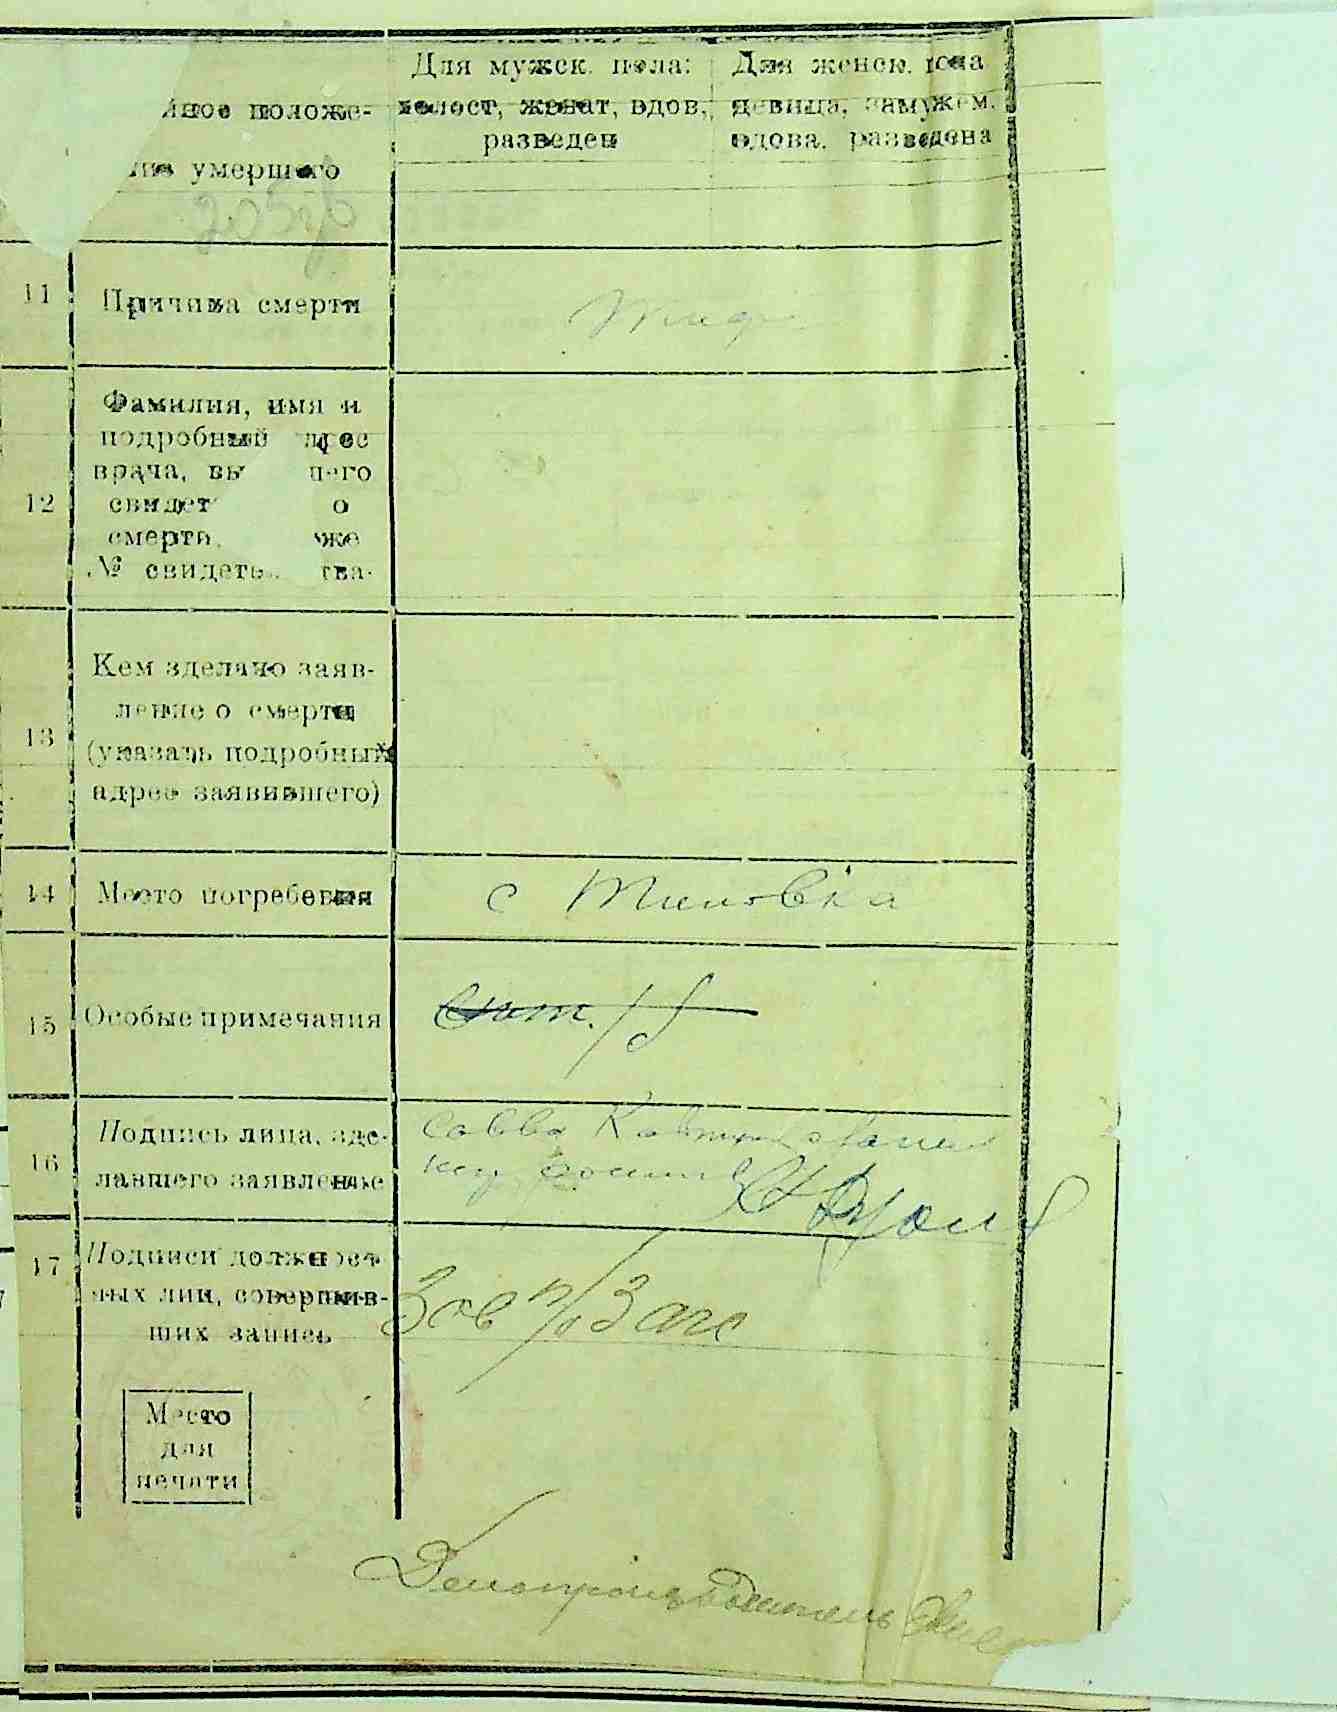 Для мужск. пола:
холост, женат, вдов,
разведен
Для женск. пола
девица, замужем.
вдова. разведена
йное положе-
ние умершего
11
Причина смерти
Тиф
12
Фамилия, имя и
подробный адрес
врача, вы шего
свидет о
смерти, кже
№ свидетель тва-
13
Кем зделано заяв-
ление о смерти
(указать подробный
адрес заявившего)
14
Место погребения
с
15
Особые примечания
16
Подпись лица, зде-
лавшего заявление
Савва
17
Подписи должност-
ных лиц, совершив-
ших запись
Зав п/Загс
Место
для
печати
Делопроизводитель